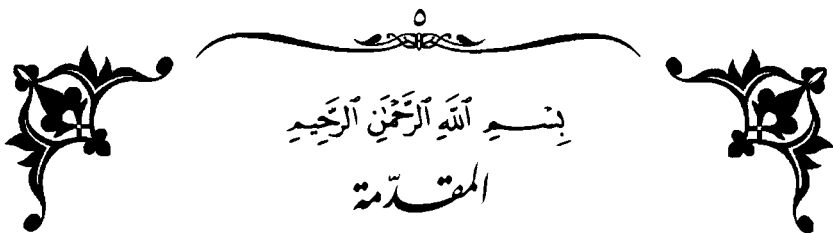 ٥
بِسْمِ ٱللَّهِ ٱلرَّحْمَٰنِ ٱلرَّحِيمِ
المقدّمة